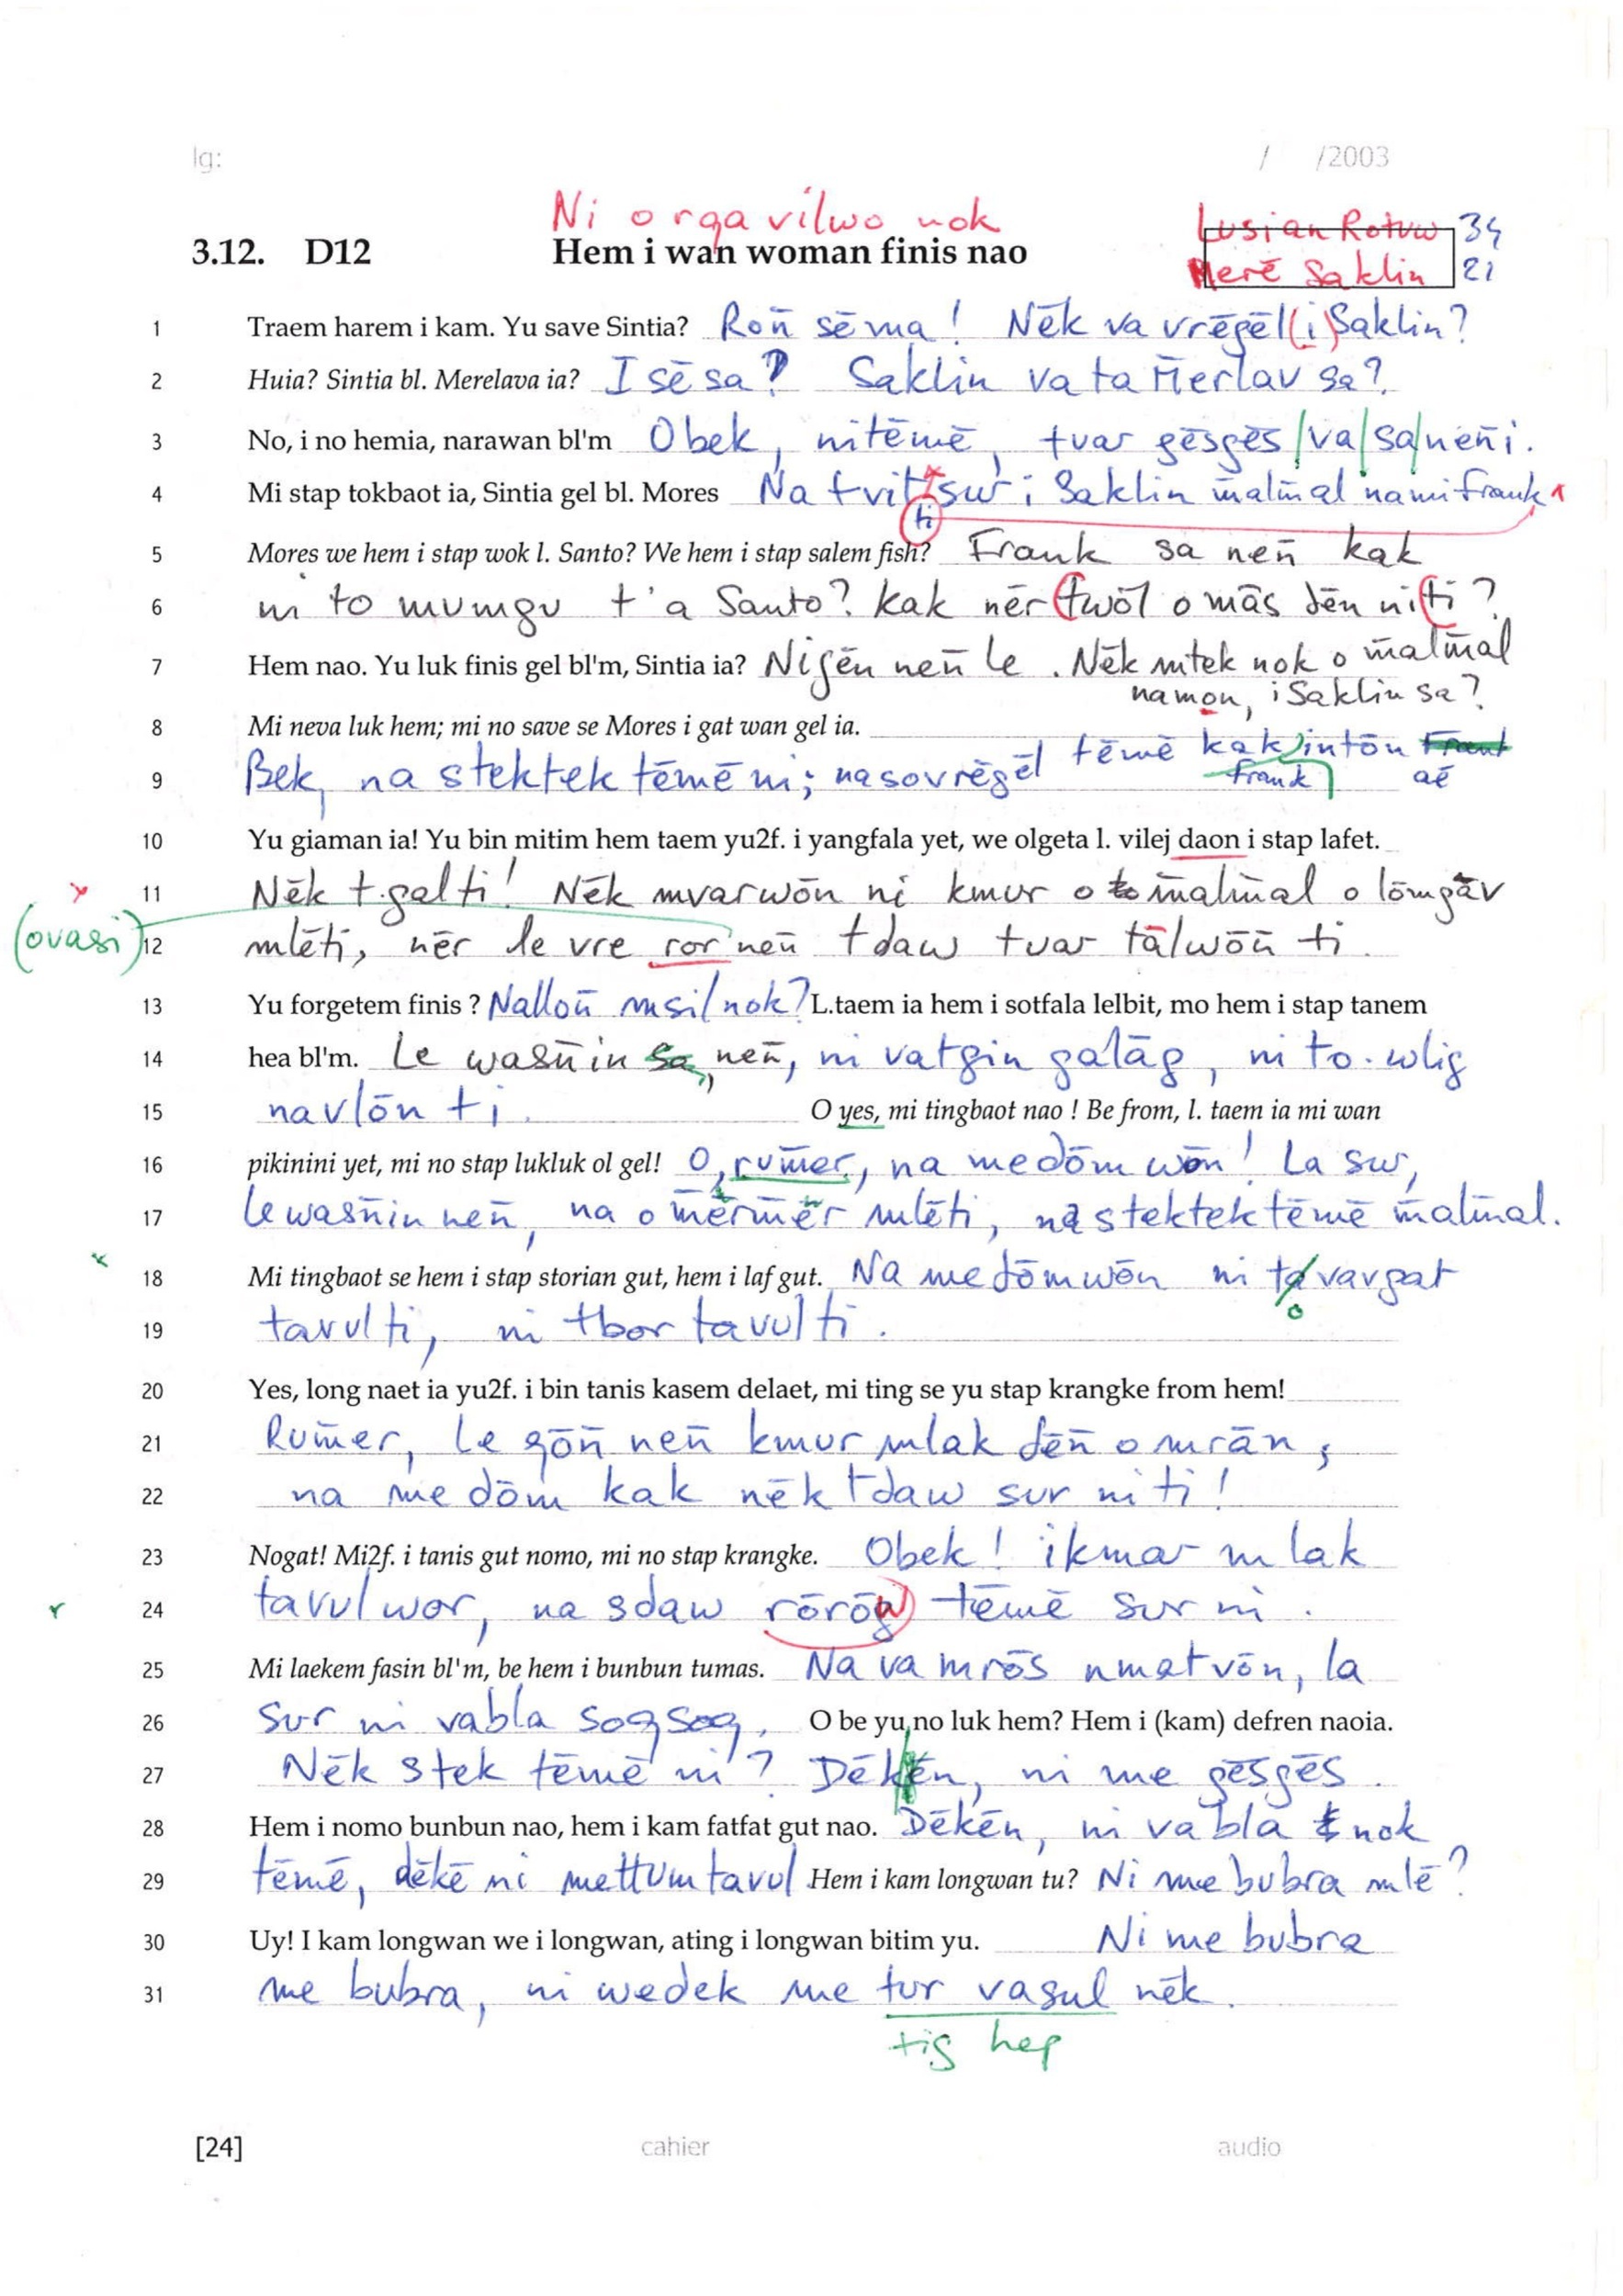 lg: / /2003
Ni o rqa vilwo nok
3.12. D12 Hem i wan woman finis nao
Lusian Rotuw 34
Merē Saklin 21
1 Traem harem i kam. Yu save Sintia? Roñ sēma! Nēk va vrēḡēl (i) Saklin?
2 Huia? Sintia bl. Merelava ia? I sē sa? Saklin va ta M̄erlav sa?
3 No, i no hemia, narawan bl'm Obek, nitēmē, tvar ḡēsḡēs/va/sa/neñi.
4 Mi stap tokbaot ia, Sintia gel bl. Mores Na tvit sur i Saklin m̄alm̄al nami Frank
ti
5 Mores we hem i stap wok l. Santo? We hem i stap salem fish? Frank sa neñ kak
6 ni to mumgu t'a Santo? kak nēr (twōl o mās dēn ni (ti?
7 Hem nao. Yu luk finis gel bl'm, Sintia ia? Niḡēn neñ le. Nēk mtek nok o m̄alm̄al
namon, i Saklin sa?
8 Mi neva luk hem; mi no save se Mores i gat wan gel ia.
tēmē kak intōn
9 Bek, na stektek tēmē ni; nasovrēḡēl Frank aē
10 Yu giaman ia! Yu bin mitim hem taem yu2f. i yangfala yet, we olgeta l. vilej daon i stap lafet.
11 Nēk t.galti! Nēk mvarwōn ni kmur o m̄alm̄al o lōmḡāv
(ovasi) 12 mlēti, nēr le vre ror neñ tdaw tvar tālwōñ ti.
13 Yu forgetem finis? Nalloñ msil nok? L.taem ia hem i sotfala lelbit, mo hem i stap tanem
14 hea bl'm. Le wasm̄in sa, neñ, ni vatḡin ḡalāḡ, ni to.wliḡ
15 navlōn ti. O yes, mi tingbaot nao ! Be from, l. taem ia mi wan
16 pikinini yet, mi no stap lukluk ol gel! O, rum̄er, na medōm wōn! La sur,
17 lewasm̄in neñ, na o m̄ērm̄ēr mlēti, nastektek tēmē m̄alm̄al.
18 Mi tingbaot se hem i stap storian gut, hem i laf gut. Na medōmwōn ni to varḡat
19 tavulti, ni tbor tavulti.
20 Yes, long naet ia yu2f. i bin tanis kasem delaet, mi ting se yu stap krangke from hem!
21 Rum̄er, le qōñ neñ kmur mlak dēñ o mrān,
22 na me dōm kak nēk tdaw sur ni ti!
23 Nogat! Mi2f. i tanis gut nomo, mi no stap krangke. Obek! ikmar mlak
24 tavul wor, na sdaw rōrōw tēmē sur ni.
25 Mi laekem fasin bl'm, be hem i bunbun tumas. Na va mrōs nmatvōn, la
26 sur ni vabla soqsoq. O be yu no luk hem? Hem i (kam) defren naoia.
27 Nēk stek tēmē ni? Dēkēn, ni me ḡēsḡēs.
28 Hem i nomo bunbun nao, hem i kam fatfat gut nao. Dēkēn, ni vabla nok
29 tēmē, dēkē ni mettumtavul Hem i kam longwan tu? Ni me bubra mlē?
30 Uy! I kam longwan we i longwan, ating i longwan bitim yu. Ni me bubra
31 me bubra, ni wedek me tur vasul nēk.
tiḡ hep
[24] cahier audio